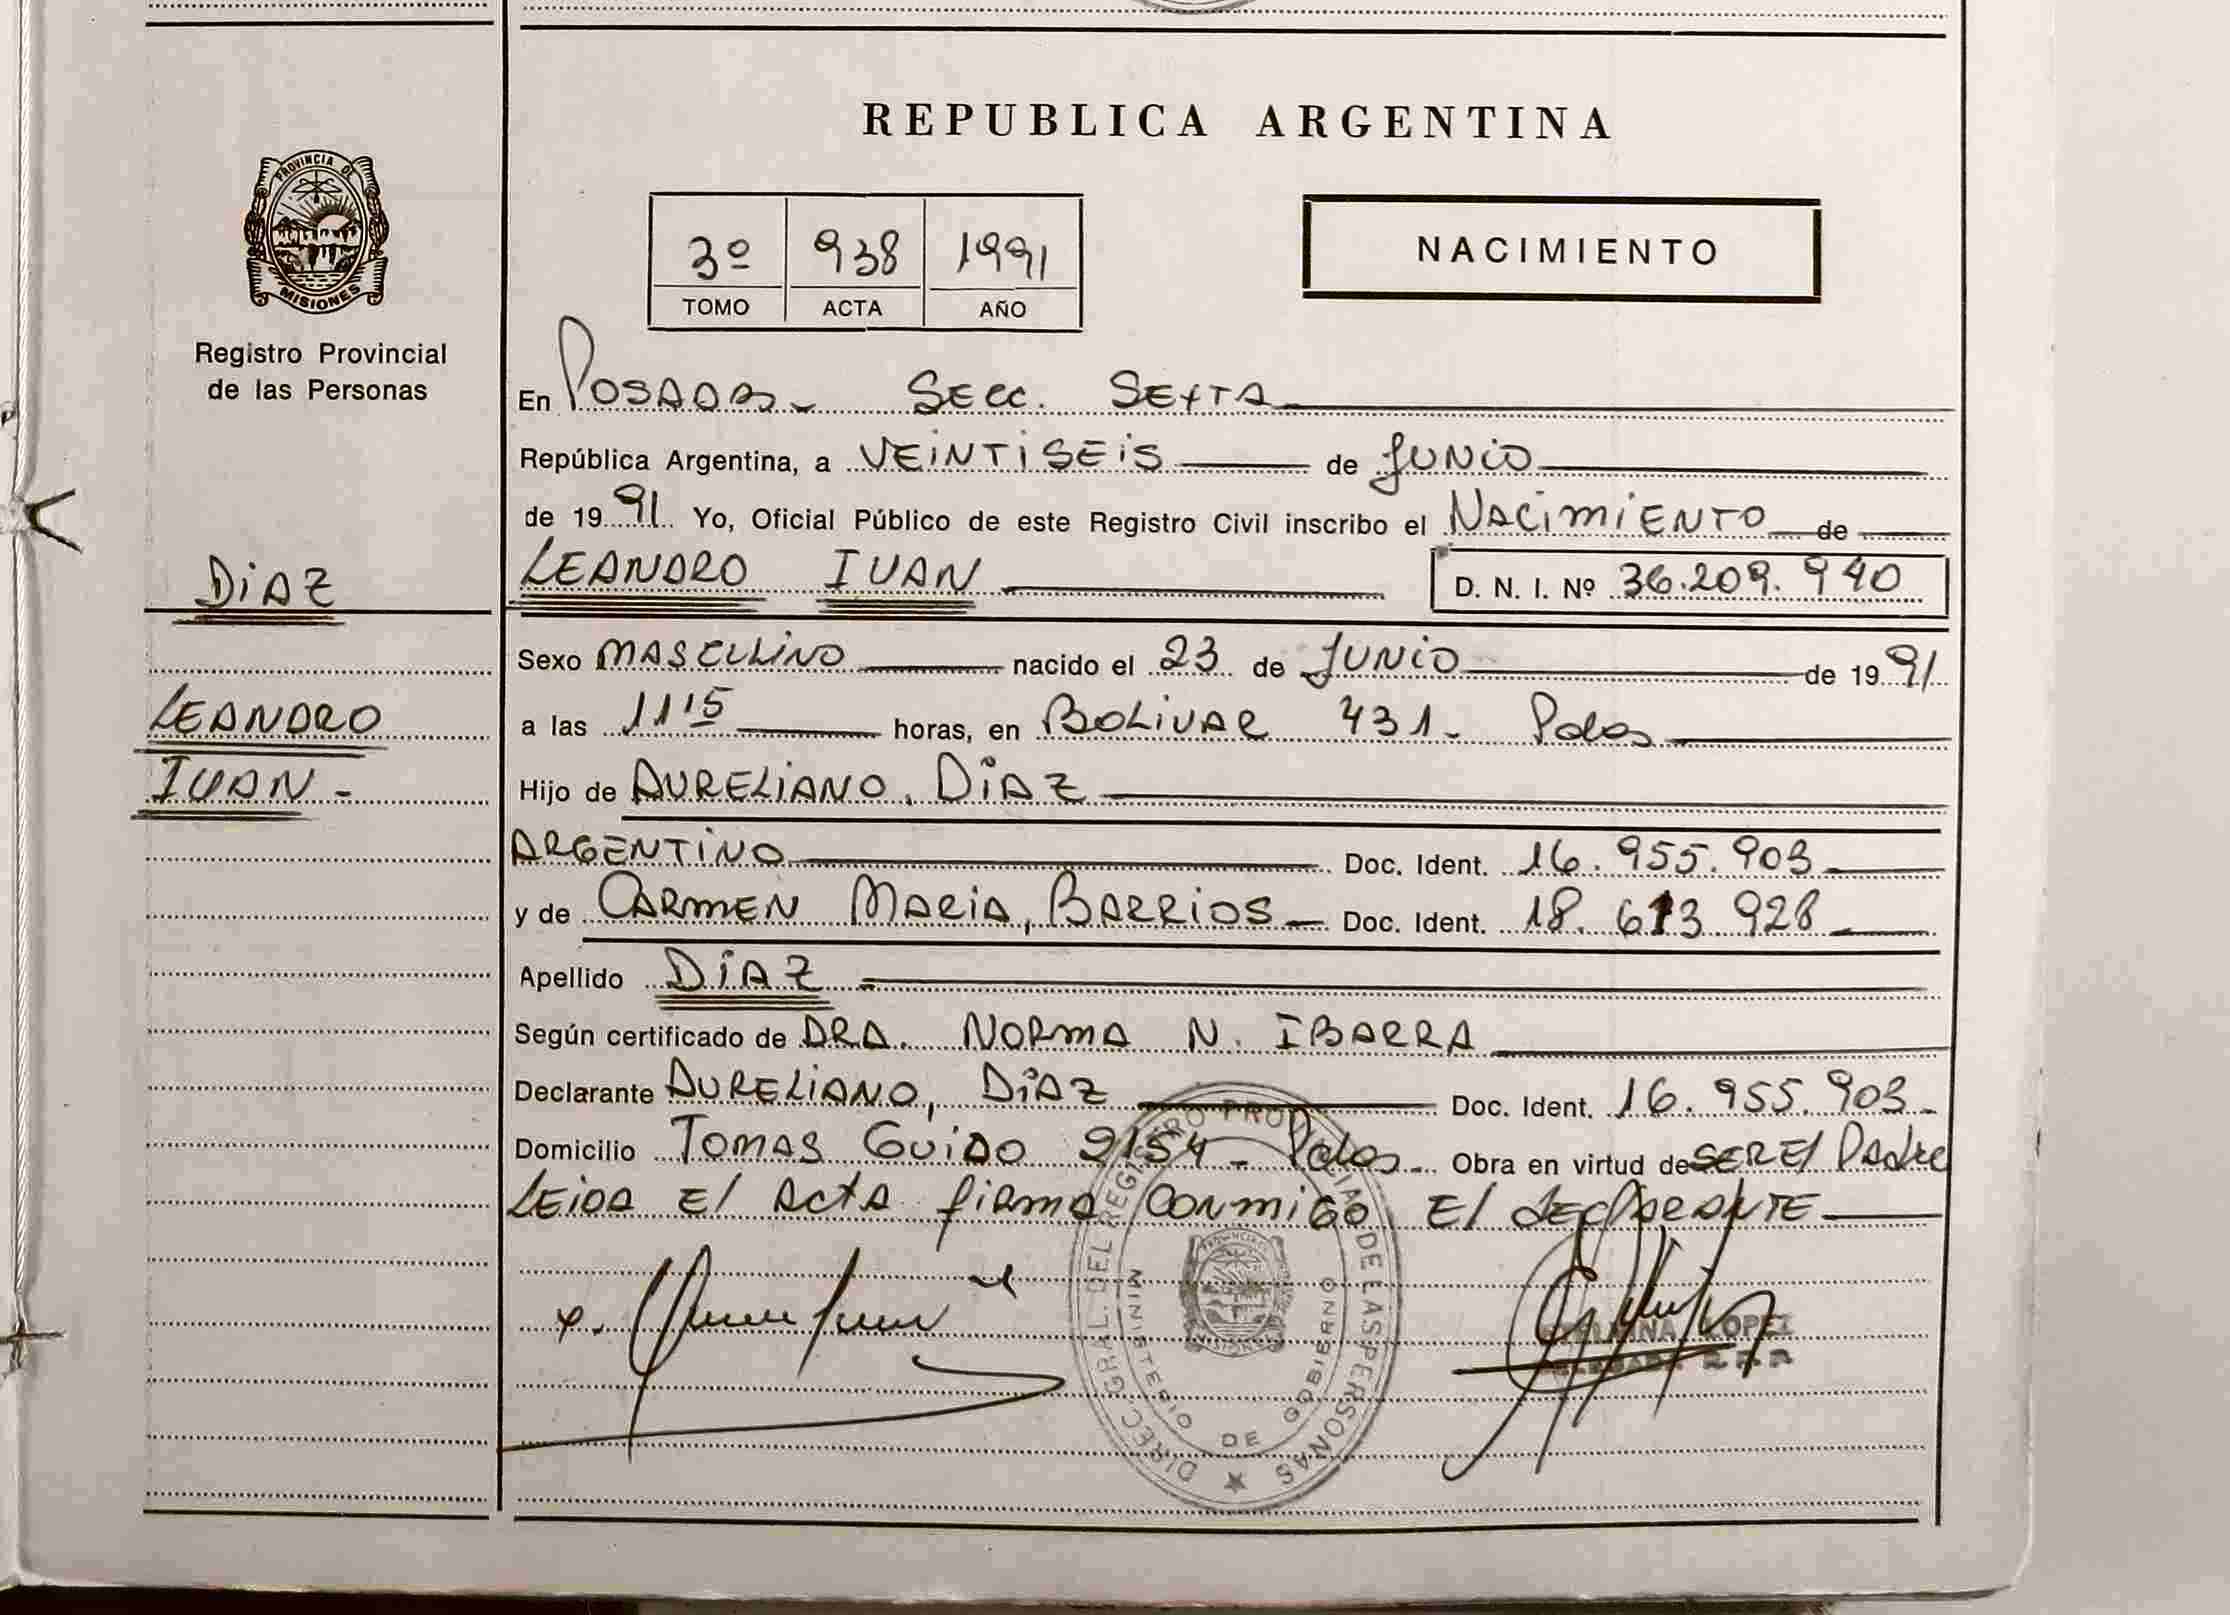 REPUBLICA ARGENTINA
PROVINCIA DE
MISIONES
Registro Provincial
de las Personas
3º 938 1991
TOMO ACTA AÑO
NACIMIENTO
En Posadas - Secc. Sexta
República Argentina, a VEINTISEIS de JUNIO
de 1991 Yo, Oficial Público de este Registro Civil inscribo el NACIMIENTO de
DIAZ
LEANDRO
IVAN -
LEANDRO IVAN D. N. I. Nº 36.209.940
Sexo MASCULINO nacido el 23 de JUNIO de 1991
a las 11 15 horas, en BOLIVAR 431 - Pdas
Hijo de AURELIANO, DIAZ
ARGENTINO Doc. Ident. 16.955.903
y de CARMEN MARIA, BARRIOS - Doc. Ident. 18.613 928
Apellido DIAZ
Según certificado de DRA. NORMA N. IBARRA
Declarante AURELIANO, DIAZ Doc. Ident. 16.955.903
Domicilio TOMAS GUIDO 2154 - Pdas - Obra en virtud de SER El Padre
LEIDA El ActA firma conmigo El declarante
DIRECC. GRAL. DEL REGISTRO PROVINCIAL DE LAS PERSONAS
MINISTERIO DE GOBIERNO
PROVINCIA DE
MISIONES
LOPEZ